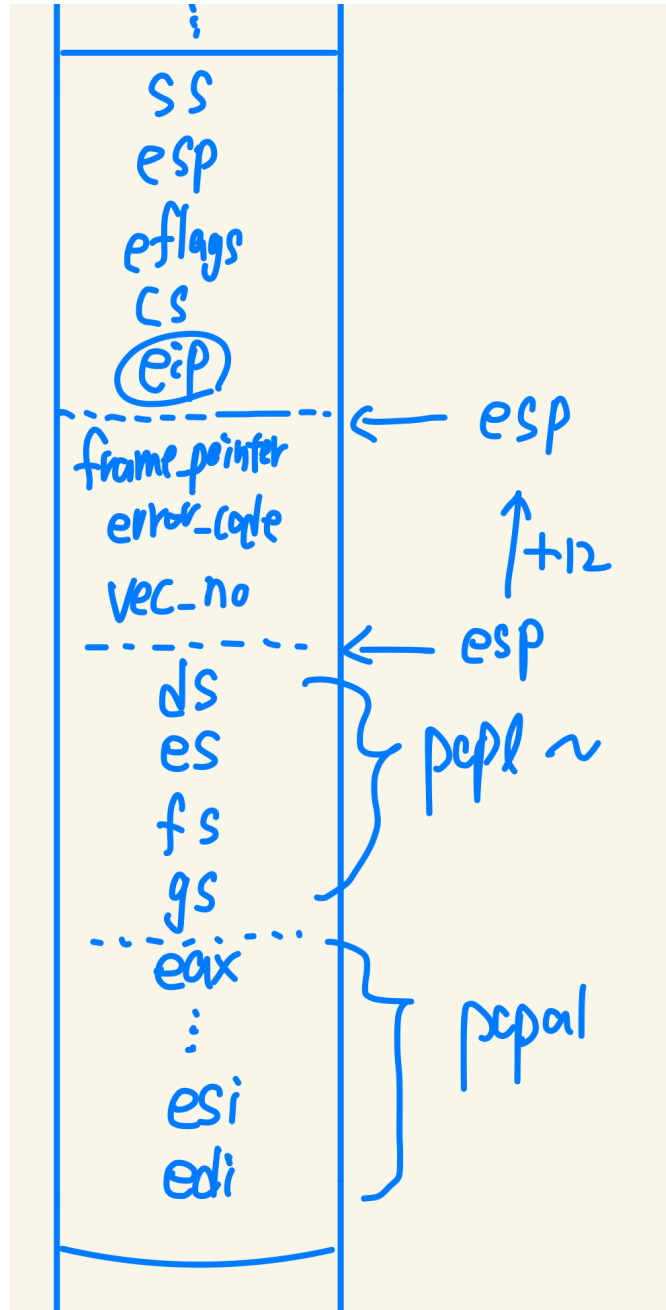 ss
esp
eflags
cs
eip
← esp
frame_pointer
error_code
↑ +12
vec_no
← esp
ds
es
popl ~
fs
gs
eax
⋮
popal
esi
edi